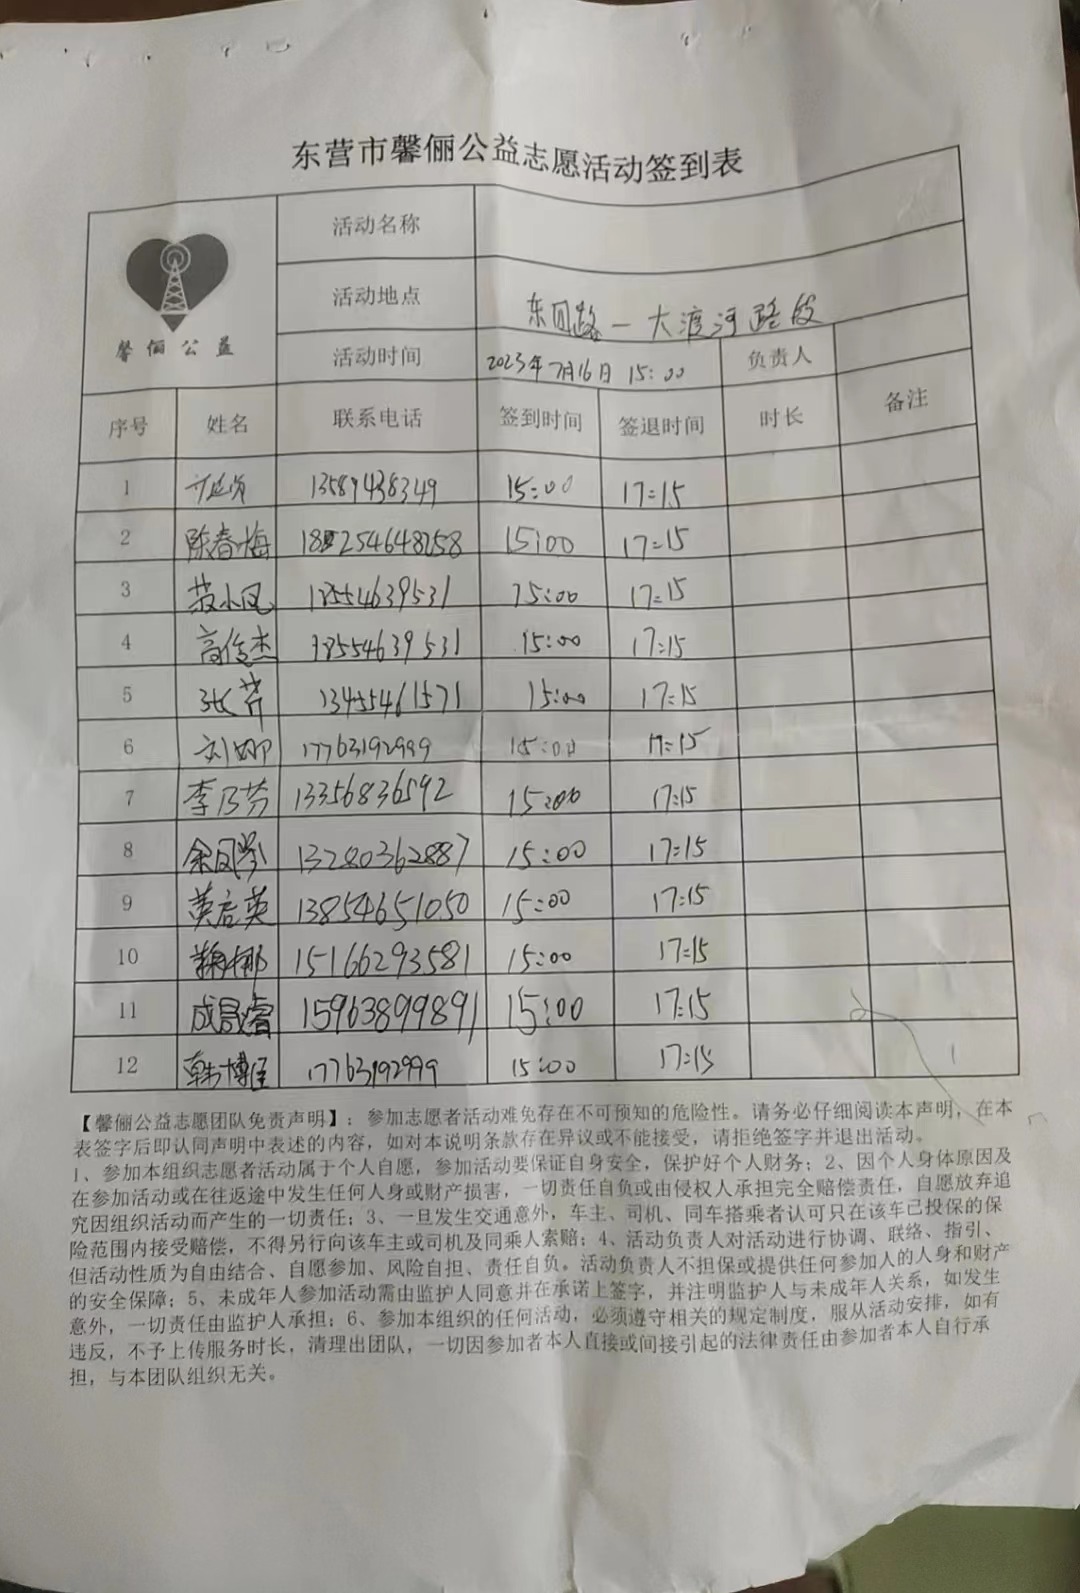 东营市馨俪公益志愿活动签到表
馨俪公益
活动名称
活动地点 东 路一大渡河路段
活动时间 2023年7月16日 15:00 负责人
序号 姓名 联系电话 签到时间 签退时间 时长 备注
1 13589438349 15:00 17:15
2 陈春梅 18254648258 15:00 17:15
3 小凤 13554639531 15:00 17:15
4 高俊杰 13554639531 15:00 17:15
5 张芹 13455461571 15:00 17:15
6 刘娜 17763192999 15:00 17:15
7 李乃芬 13356836592 15:00 17:15
8 余凤 13280362887 15:00 17:15
9 英 13854651050 15:00 17:15
10 鞠娜 15166293581 15:00 17:15
11 成晟睿 15963899891 15:00 17:15
12 韩博 17763192999 15:00 17:15
【馨俪公益志愿团队免责声明】：参加志愿者活动难免存在不可预知的危险性。请务必仔细阅读本声明，在本
表签字后即认同声明中表述的内容，如对本说明条款存在异议或不能接受，请拒绝签字并退出活动。
1、参加本组织志愿者活动属于个人自愿，参加活动要保证自身安全，保护好个人财务；2、因个人身体原因及
在参加活动或在往返途中发生任何人身或财产损害，一切责任自负或由侵权人承担完全赔偿责任，自愿放弃追
究因组织活动而产生的一切责任；3、一旦发生交通意外，车主、司机、同车搭乘者认可只在该车已投保的保
险范围内接受赔偿，不得另行向该车主或司机及同乘人索赔；4、活动负责人对活动进行协调、联络、指引、
但活动性质为自由结合、自愿参加、风险自担、责任自负。活动负责人不担保或提供任何参加人的人身和财产
的安全保障；5、未成年人参加活动需由监护人同意并在承诺上签字，并注明监护人与未成年人关系，如发生
意外，一切责任由监护人承担；6、参加本组织的任何活动，必须遵守相关的规定制度，服从活动安排，如有
违反，不予上传服务时长，清理出团队，一切因参加者本人直接或间接引起的法律责任由参加者本人自行承
担，与本团队组织无关。